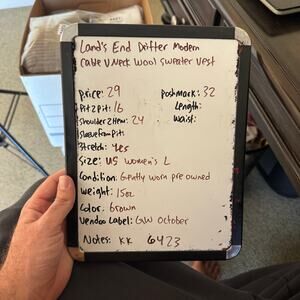 Land's End Drifter Modern
Cable V Neck Wool Sweater Vest
Price: 29
Poshmark: 32
Pit 2 pit: 16
Length:
Shoulder 2 Hem: 24
Waist:
Sleeve from pit:
Stretch: Yes
Size: US Women's L
Condition: Gently worn pre owned
Weight: 15oz
Color: Brown
Vendoo Label: GW October
Notes: KK 6423